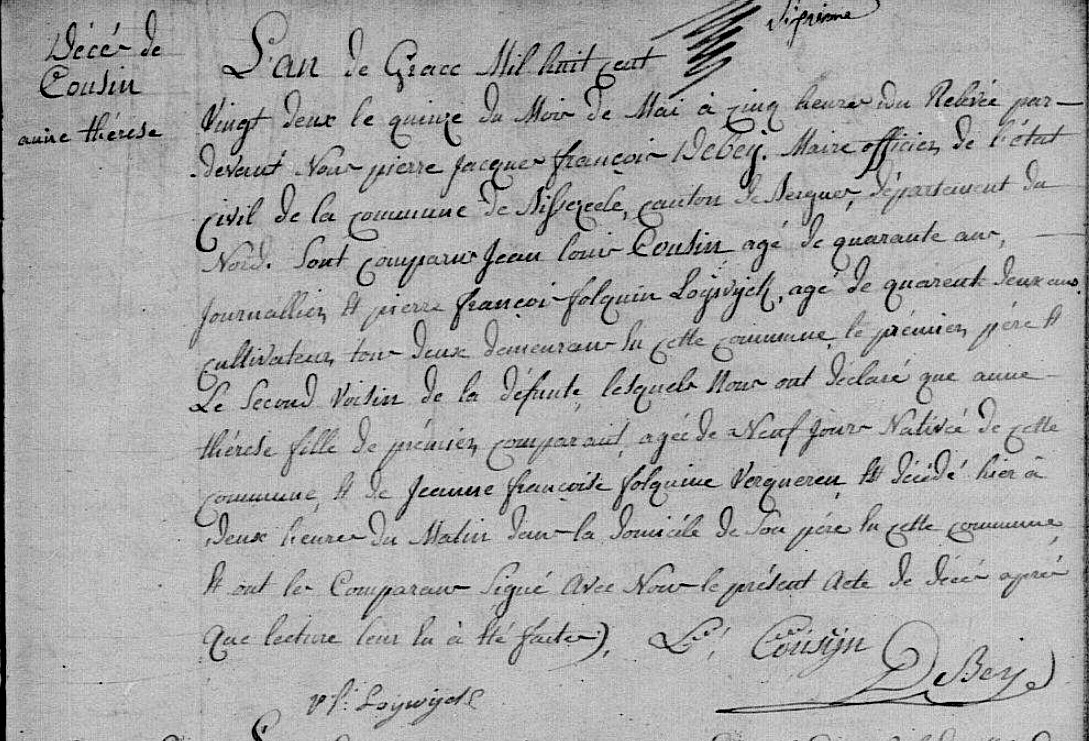 Décés de
Cousin
anne thérèse
L'an de Grace Mil huit cent
Vingt deux le quinze du Mois de Mai à cinq heures du Relevée par-
devant Nous pierre Jacques françois Debey. Maire officier de l'état
civil de la commune de Nisserzeele, canton de Bergues, département du
Nord. Sont comparus Jean louis Cousin agé de quarante ans,
Journallier et pierre françois folquin Loyswyck, agé de quarent deux ans
cultivateur, tous deux demeurans en cette commune, le prémier père et
Le Second Voisin de la défunte, lesquels Nous ont déclaré que anne
thérèse fille de prémier comparant, agée de Neuf Jours Nativée de cette
commune, et de Jeanne françoise folquine Verqueren, et décédé hier à
deux heures du Matin dans la domicile de Son père en cette commune,
et ont les Comparans Signé Avec Nous le présent Acte de décés après
Que lecture leur en à été faite),
Cousyn
DeBey